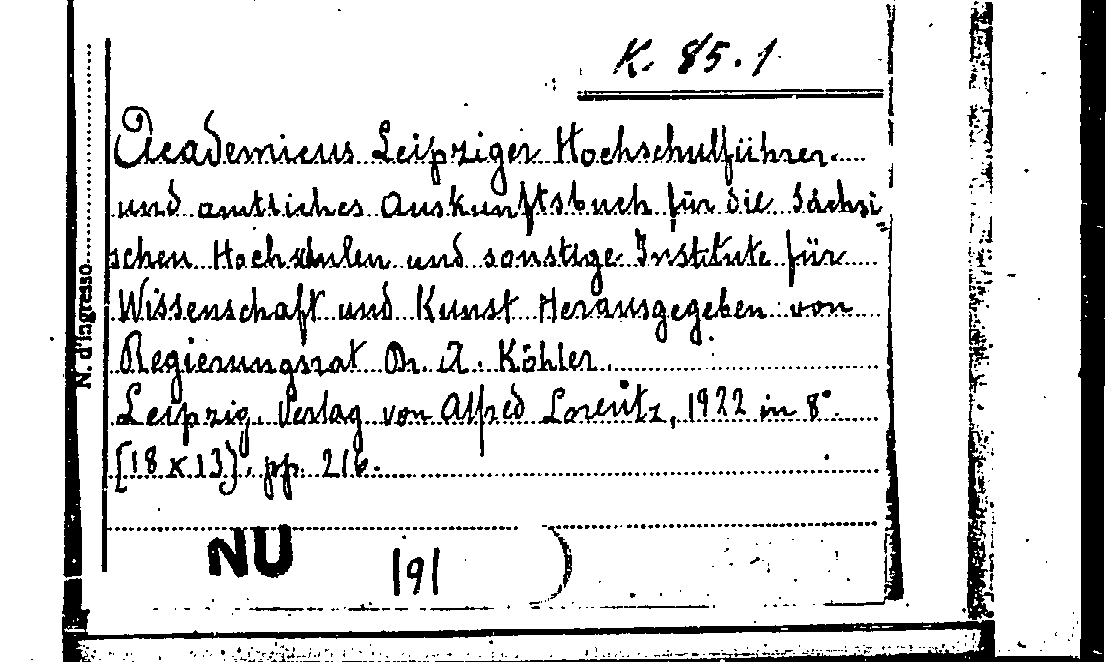 K. 85.1
Academicus Leipziger Hochschulführer
und amtliches Auskunftsbuch für die Sächsi
schen Hochschulen und sonstige Institute für
Wissenschaft und Kunst Herausgegeben von
Regierungsrat Dr. A. Köhler.
Leipzig. Verlag von Alfred Lorentz, 1922 in 8°.
[18 x 13], pp. 216.
N. d'ingresso
NU
191